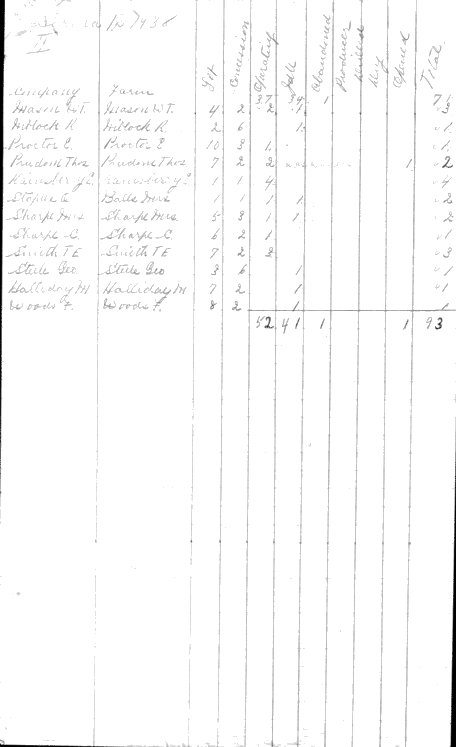 1938
II
Company Farm Lot Concession Operating Idle Abandoned Producer Drilled Dry Opened Total
37 34 1 71
Mason W.T. Mason W T. 4 2 2 1 3
Hiblock R Hiblock R. 2 6 1 1
Proctor E. Proctor E 10 3 1 1
Prudom Thos Prudom Thos 7 2 2 1 2
1 1 4 4
Balls Mrs 1 1 1 1 2
Sharpe Mrs Sharpe Mrs 5 3 1 1 2
Sharpe C. Sharpe C. 6 2 1 1
Smith T E Smith T E 7 2 3
Steele Geo Steele Geo 3 6 1 1
Halliday M Halliday M 7 2 1 1
Woods F. Woods F. 8 2 1 1
52 41 1 1 93